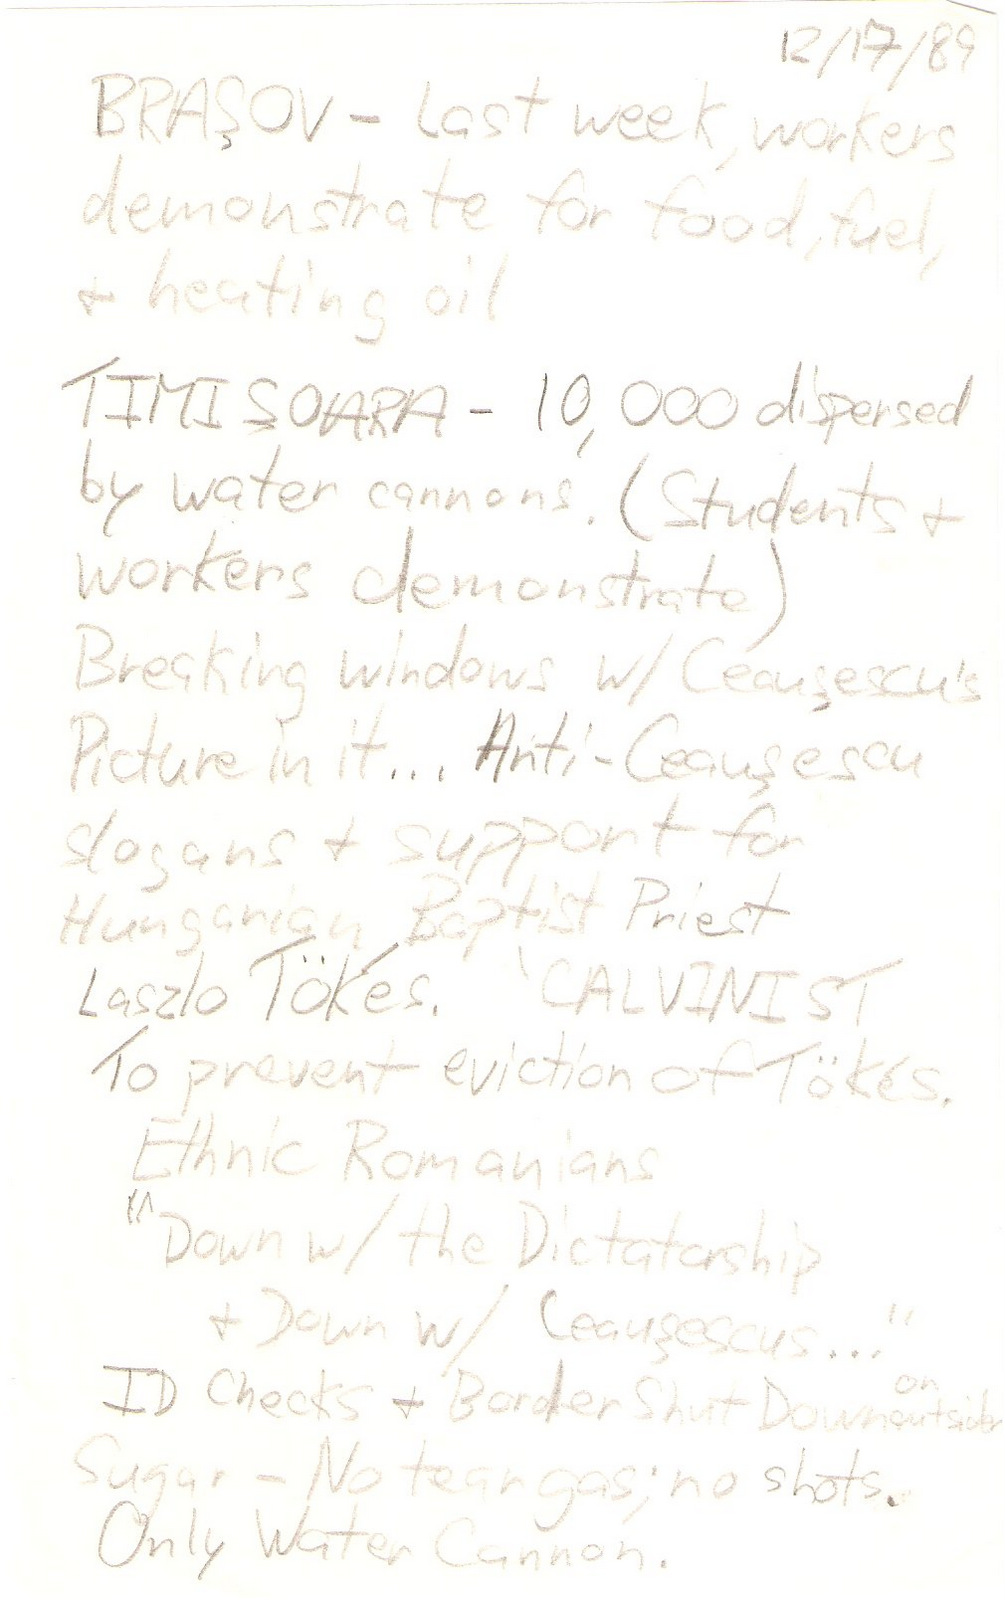 12/17/89
BRAŞOV - Last week, workers
demonstrate for food, fuel,
+ heating oil
TIMIŞOARA - 10,000 dispersed
by water cannons. (Students +
workers demonstrate)
Breaking windows w/ Ceauşescu's
Picture in it... Anti-Ceauşescu
slogans + support for
Hungarian Baptist Priest
Laszlo Tökés. CALVINIST
To prevent eviction of Tökés.
Ethnic Romanians
"Down w/ the Dictatorship
+ Down w/ Ceauşescus..."
ID Checks + Border Shut Down on
Sugar - No tear gas; no shots.
Only Water Cannon.